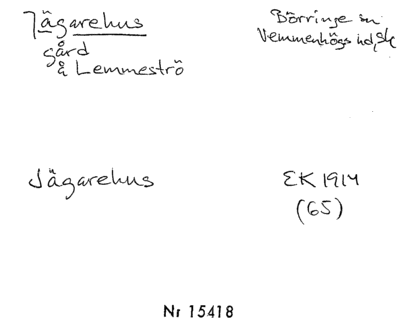 Jägarehus
gård
å Lemmeströ
Börringe sn
Vemmenhögs hd, Sk
Jägarehus
EK 1914
(65)
Nr 15418